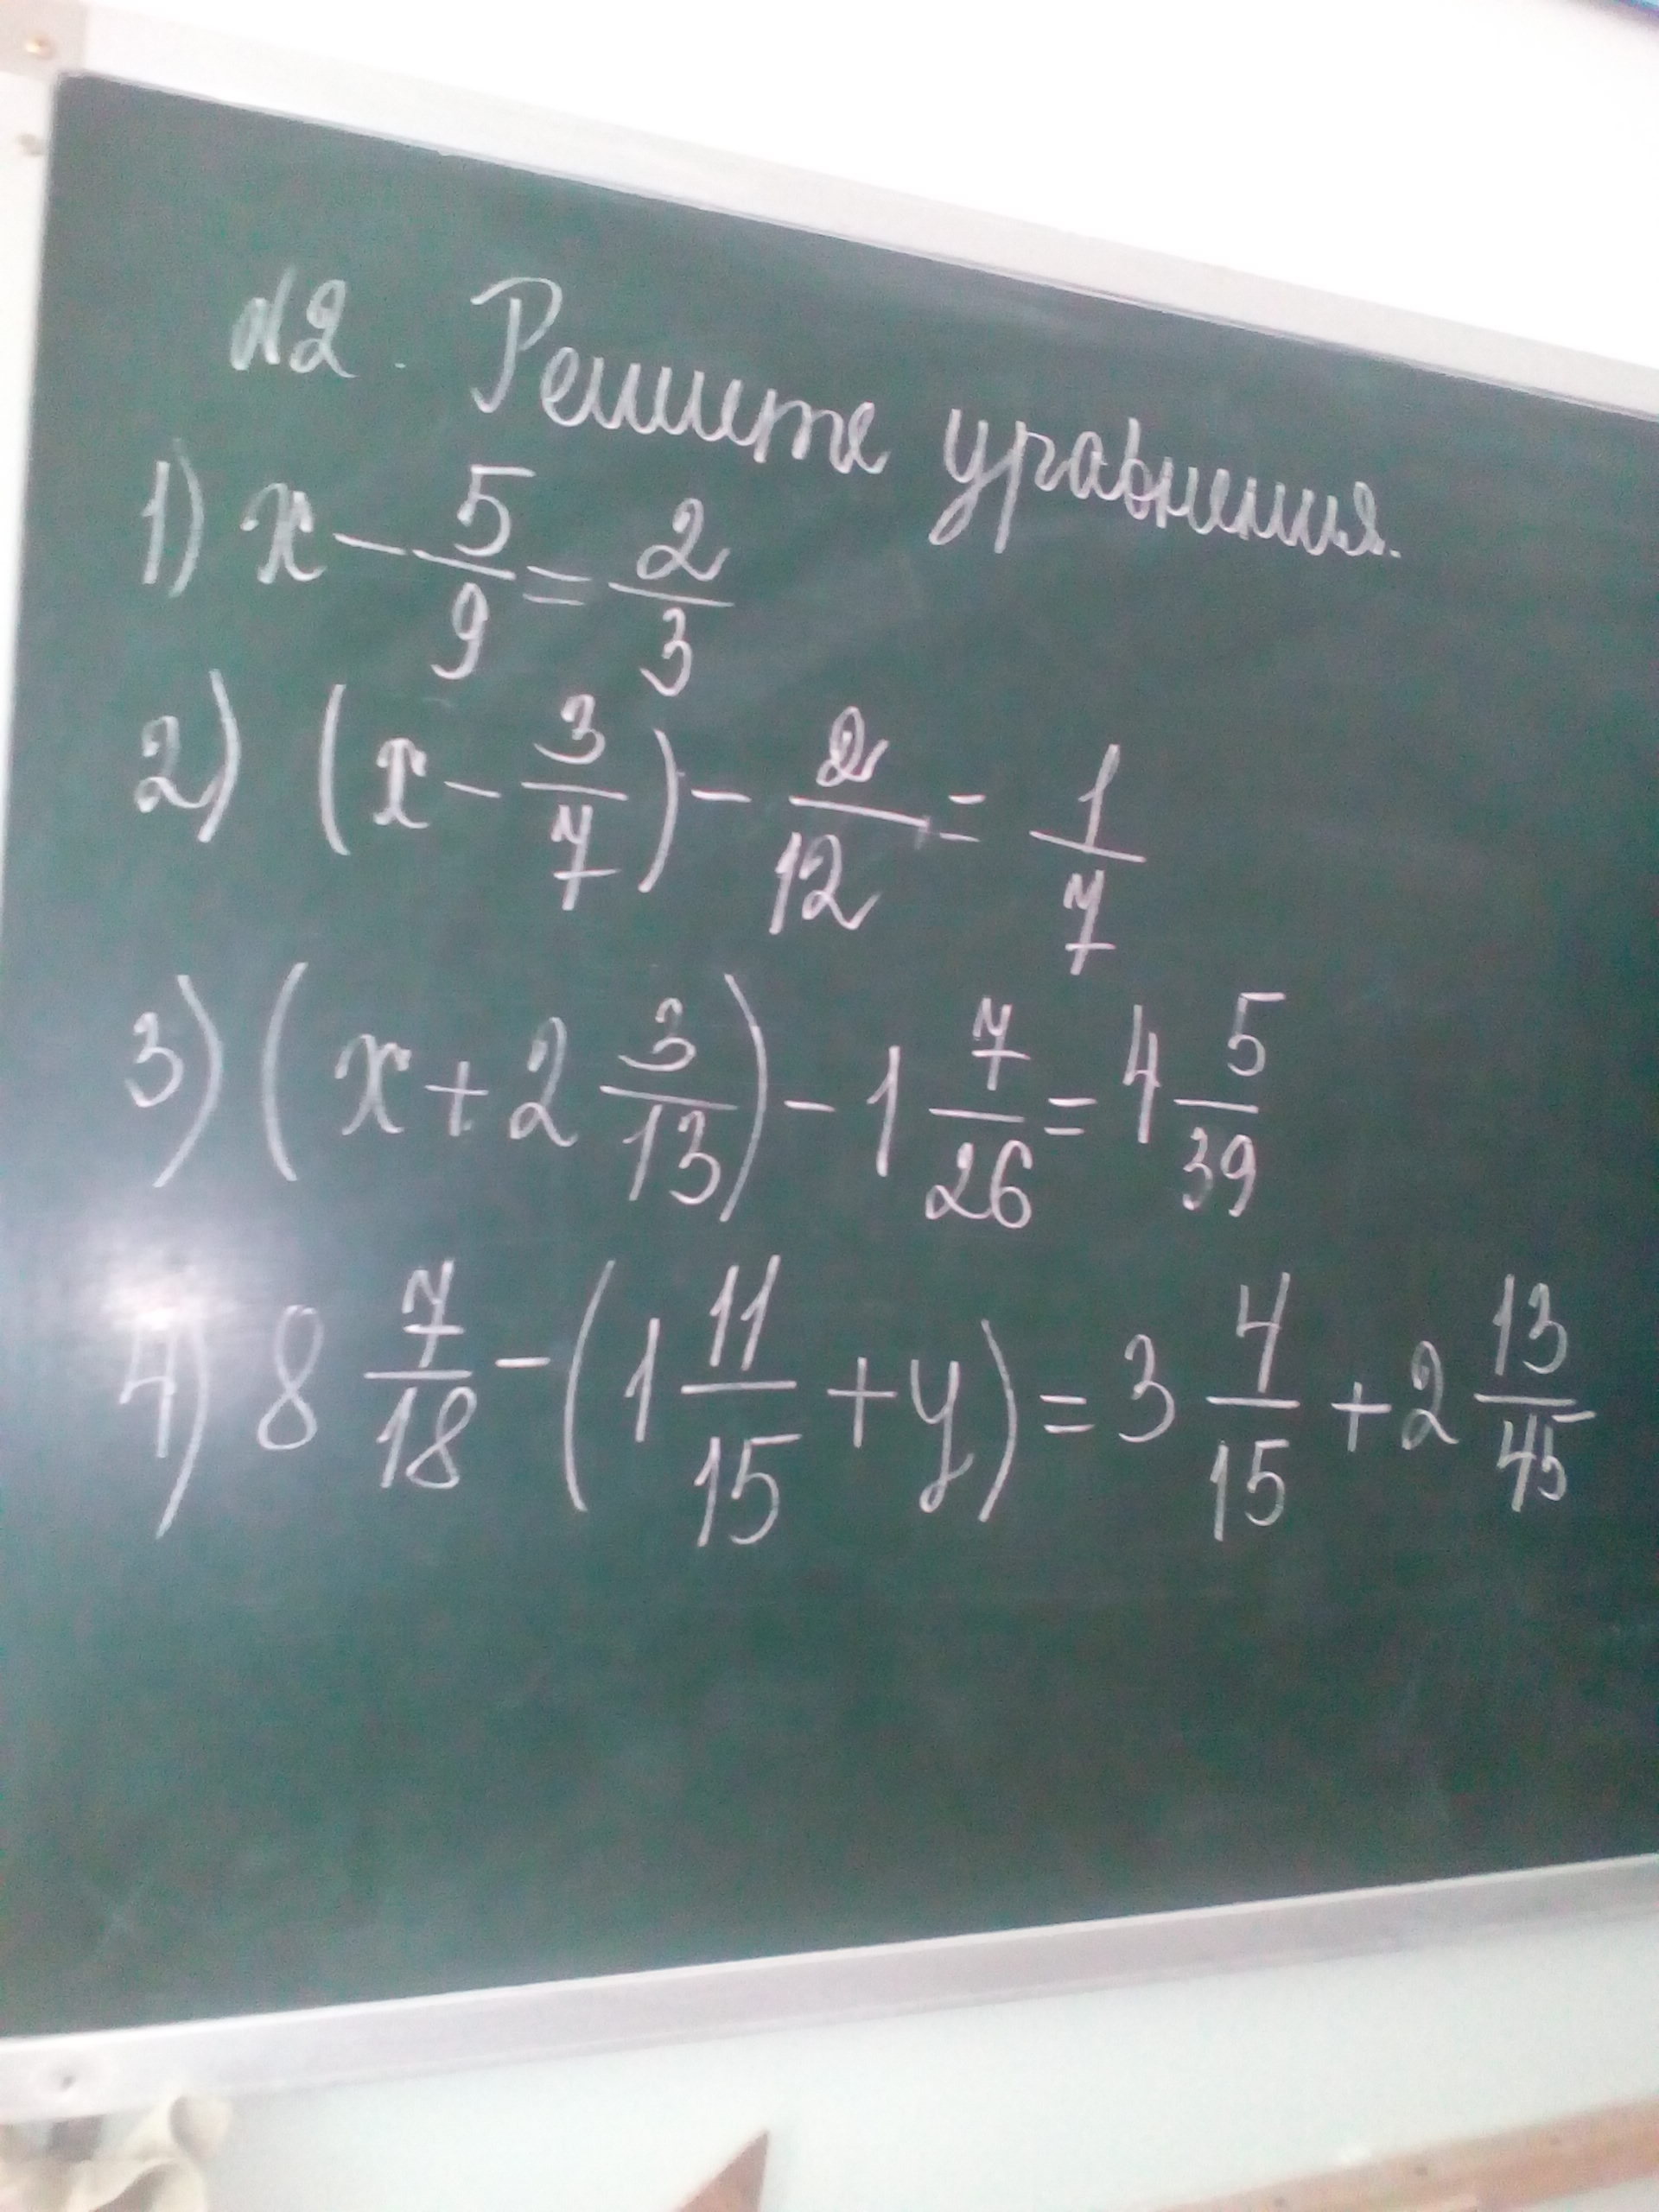 №2. Решите уравнения.
1) x - 5/9 = 2/3
2) (x - 3/7) - 2/12 = 1/7
3) (x + 2 3/13) - 1 7/26 = 4 5/39
4) 8 7/18 - (1 11/15 + y) = 3 4/15 + 2 13/45